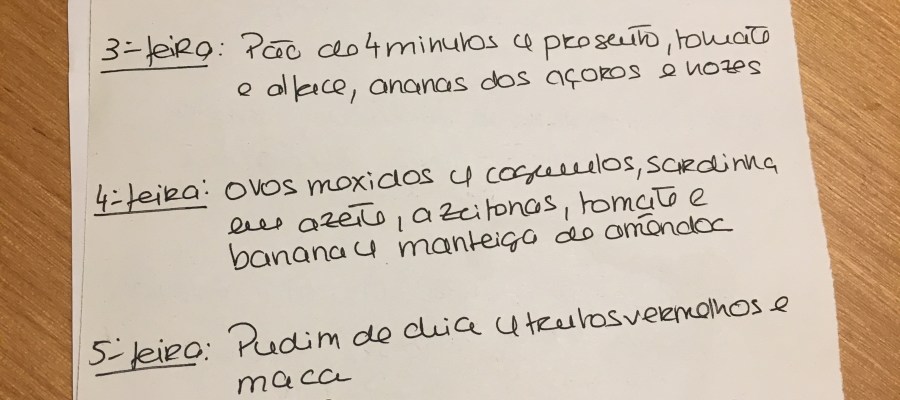 3ª-feira: Pão de 4 minutos c/ presunto, tomate
e alface, ananas dos açores e nozes
4ª-feira: Ovos mexidos c/ cogumelos, sardinha
em azeite, azeitonas, tomate e
banana c/ manteiga de amêndoa
5ª-feira: Pudim de chia c/ frutos vermelhos e
maca